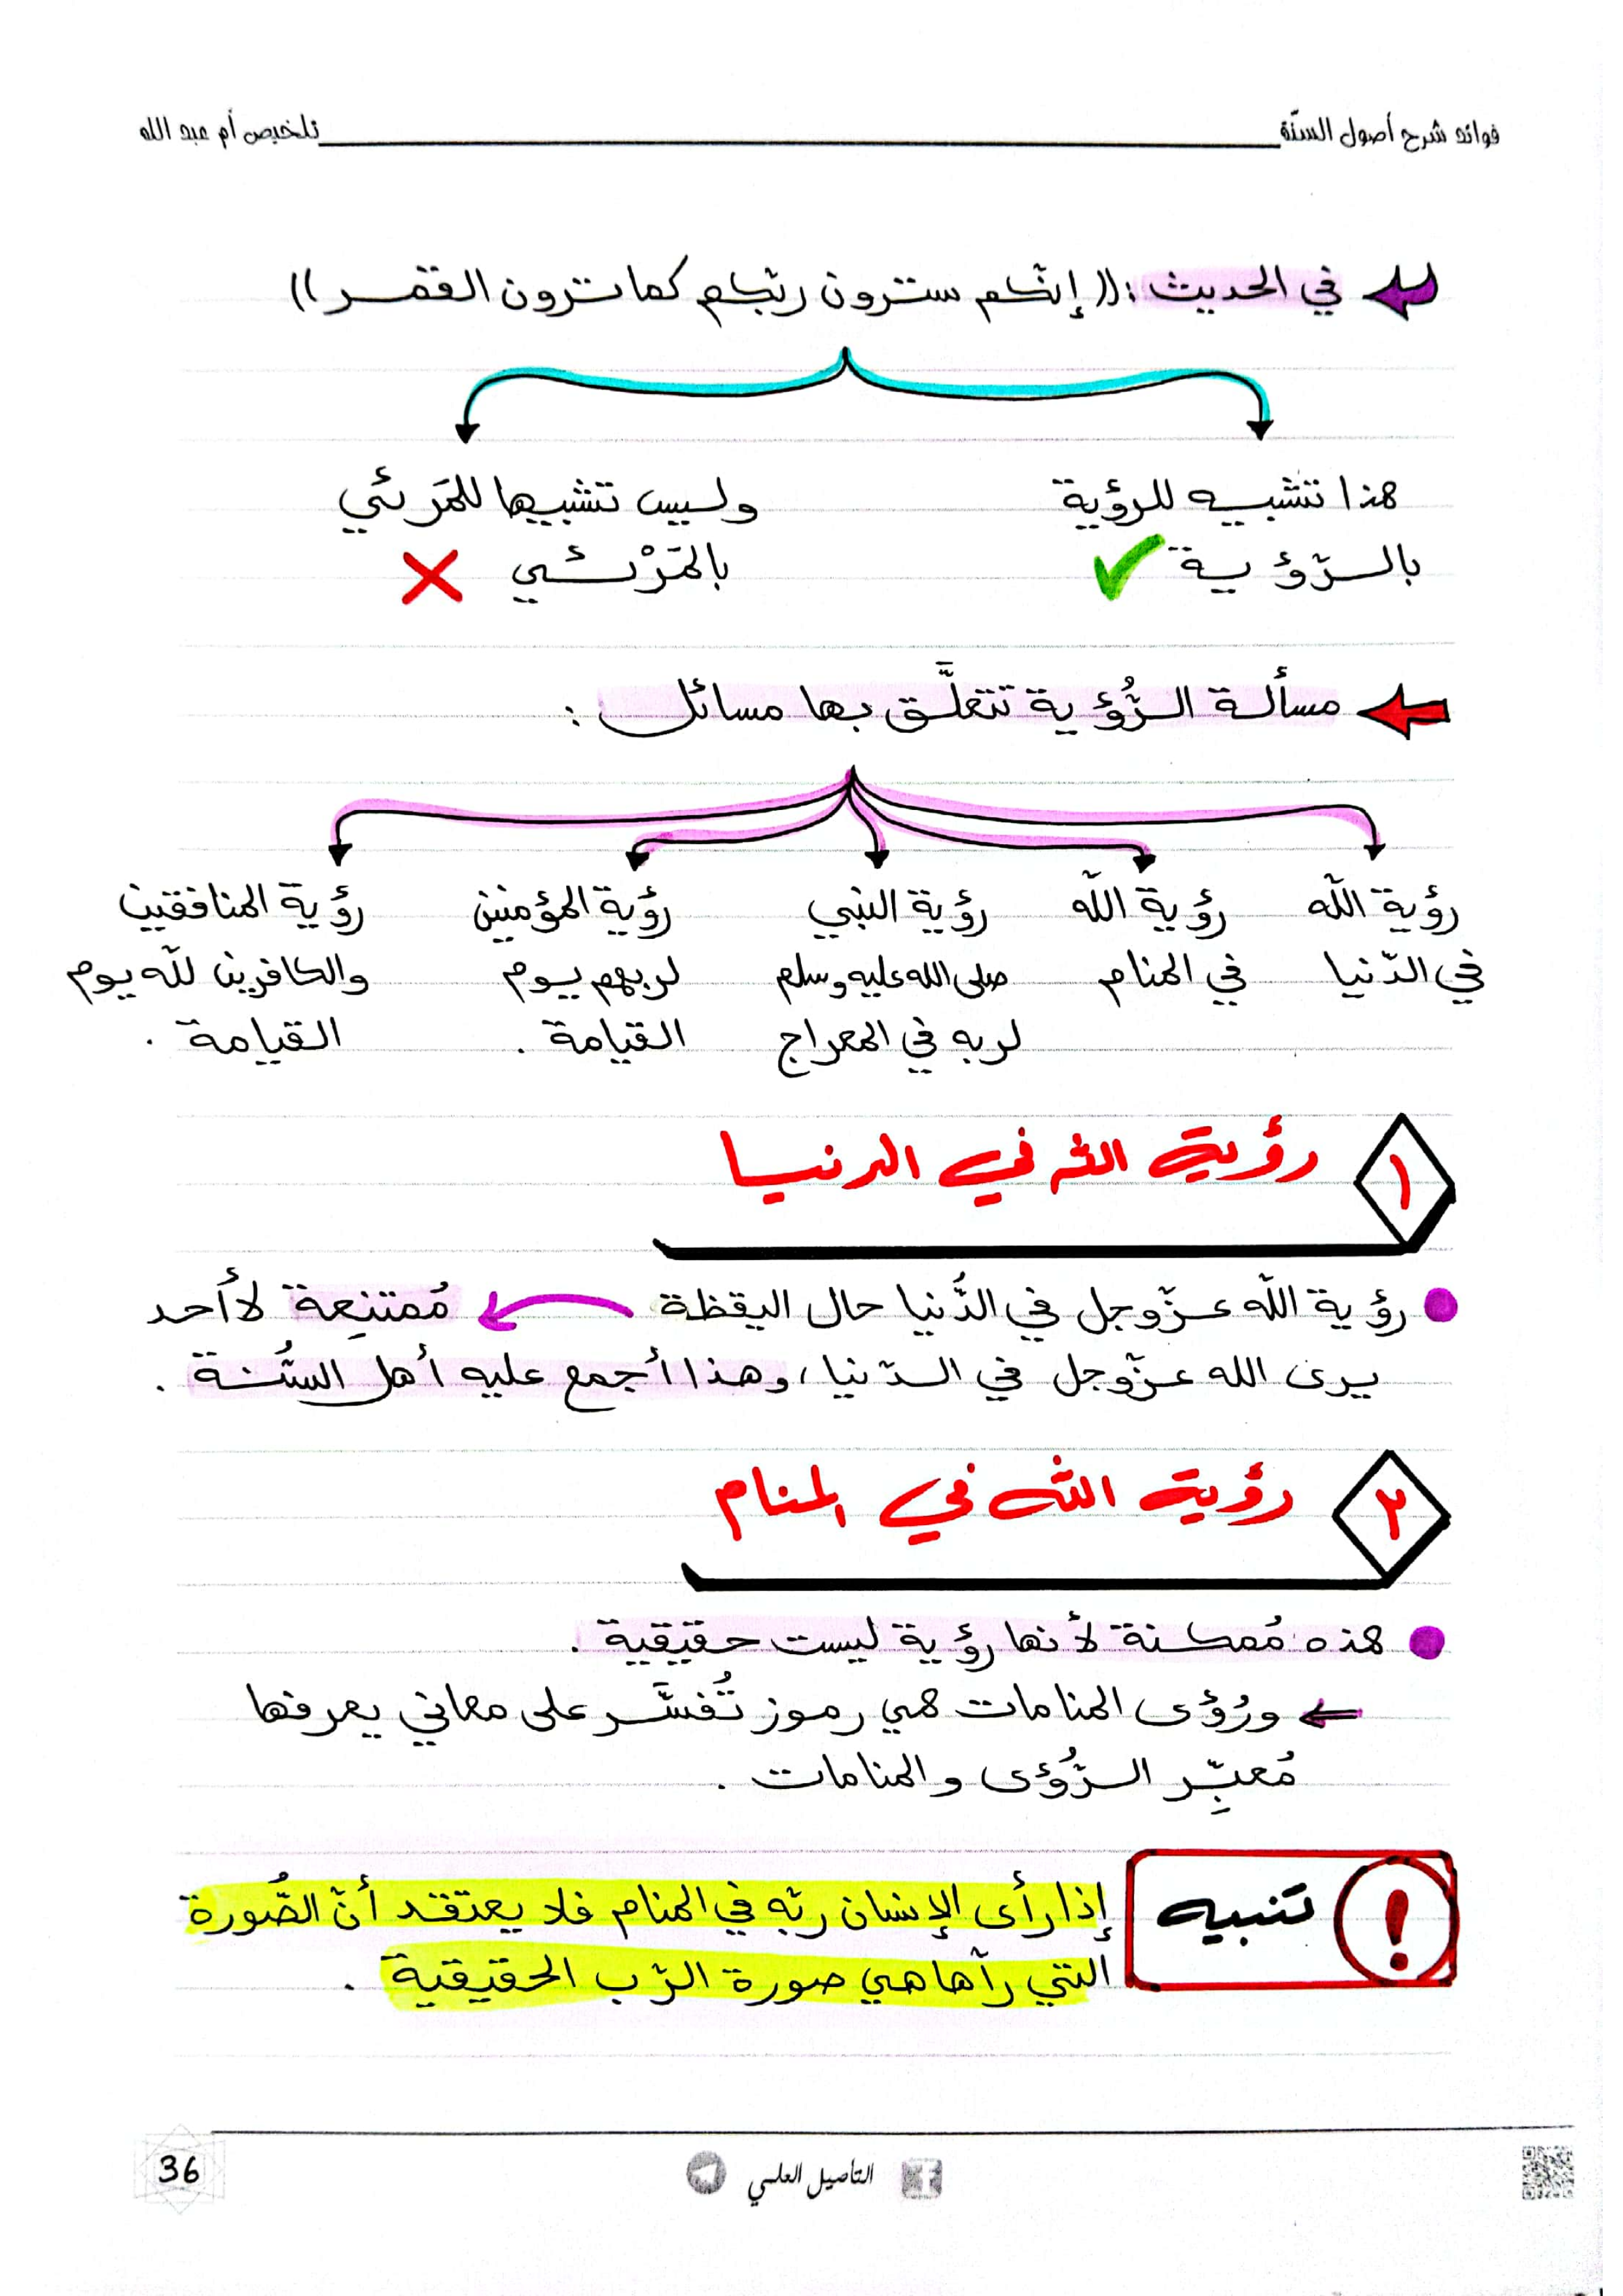 فوائد شرح أصول السنّة
تلخيص أم عبد الله
في الحديث : (( إنّكم سترون ربّكم كما ترون القمر ))
هذا تشبيه للرؤية
بالرّؤية
وليس تشبيها للمَرئي
بالمَرْئي
مسألة الرُّؤية تتعلَّق بها مسائل :
رؤية اللّه
في الدّنيا
رؤية اللّه
في المنام
رؤية النبي
صلى الله عليه وسلم
لربه في المعراج
رؤية المؤمنين
لربهم يوم
القيامة .
رؤية المنافقين
والكافرين للّه يوم
القيامة .
١
رؤية الله في الدنيا
رؤية اللّه عزّوجل في الدُّنيا حال اليقظة مُمتنِعة لا أحد
يرى الله عزّوجل في الدّنيا ، وهذا أجمع عليه أهل السُّنة .
٢
رؤية الله في المنام
هذه مُمكنة لأنها رؤية ليست حقيقية .
ورُؤى المنامات هي رموز تُفسَّر على معاني يعرفها
مُعبِّر الرُّؤى والمنامات .
! تنبيه
إذا رأى الإنسان ربّه في المنام فلا يعتقد أنّ الصُّورة
التي رآها هي صورة الرّب الحقيقية .
التأصيل العلمي
36